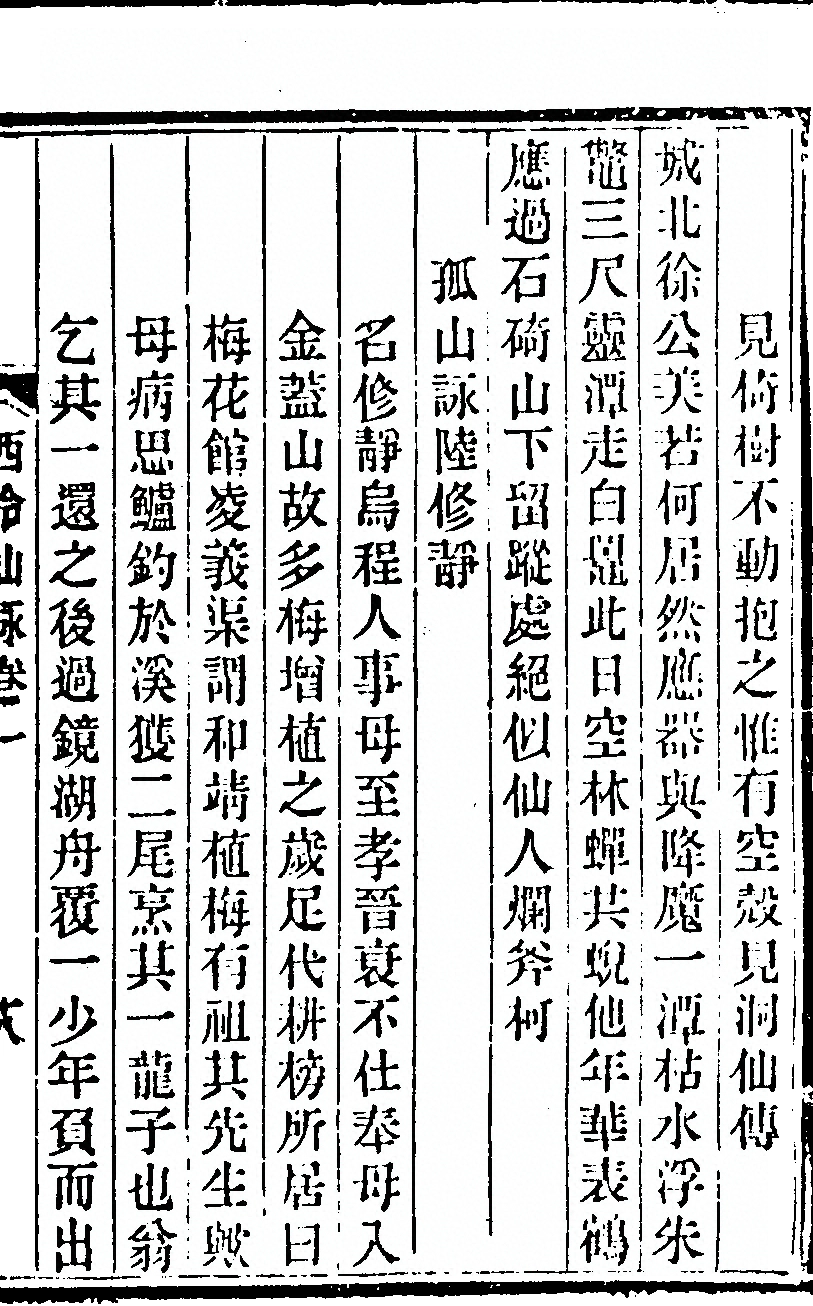 見倚樹不動抱之惟有空殼見洞仙傳
城北徐公美若何居然應器與降魔一潭枯水浮朱
鼈三尺靈潭走白鼉此日空林蟬共蛻他年華表鶴
應過石碕山下留蹤處絕似仙人爛斧柯
孤山詠陸修靜
名修靜烏程人事母至孝晉衰不仕奉母入
金蓋山故多梅增植之歲足代耕榜所居曰
梅花館凌義渠謂和靖植梅有祖其先生歟
母病思鱸釣於溪獲二尾烹其一龍子也翁
乞其一還之後過鏡湖舟覆一少年負而出
西泠山詠卷二